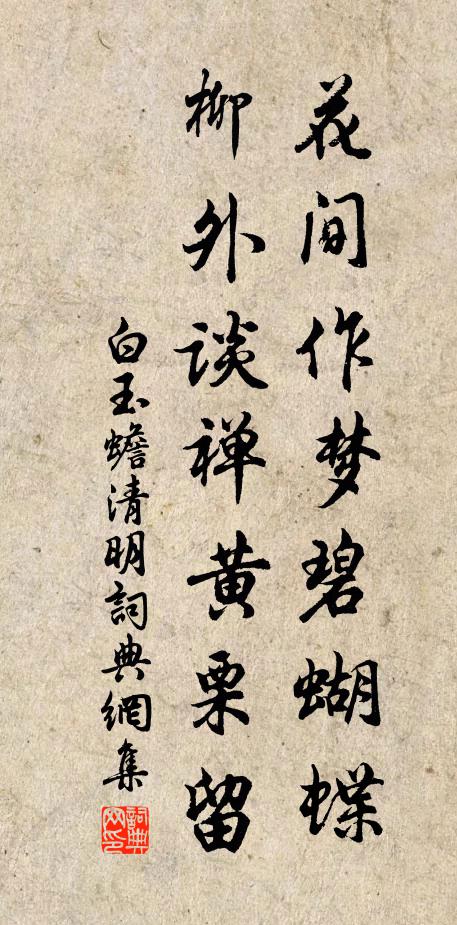 花间作梦碧蝴蝶
柳外谈禅黄栗留
白玉蟾清明詞典網集
詞典网印